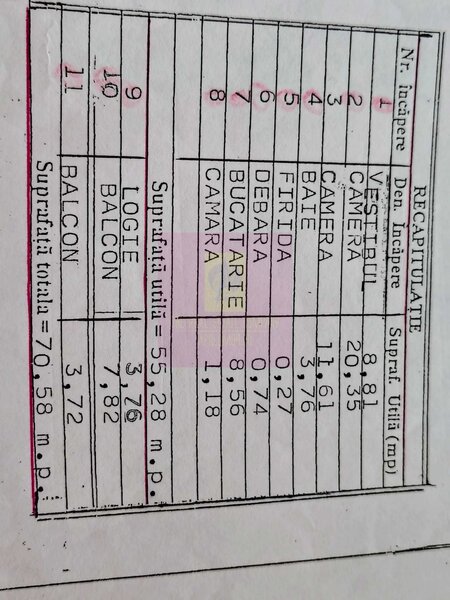 RECAPITULAŢIE
Nr. încăpere Den. Încăpere Supraf. Utilă (mp)
1 VESTIBUL 8,81
2 CAMERA 20,35
3 CAMERA 11,61
4 BAIE 3,76
5 FIRIDA 0,27
6 DEBARA 0,74
7 BUCATARIE 8,56
8 CAMARA 1,18
Suprafaţă utilă = 55,28 m.p.
9 LOGIE 3,76
10 BALCON 7,82
11 BALCON 3,72
Suprafaţă totala = 70,58 m.p.